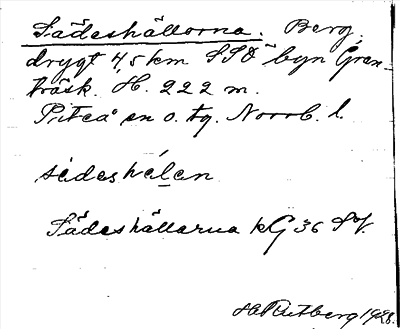 Sädeshällorna. Berg,
drygt 4,5 km SSO byn Gran-
träsk. H. 222 m.
Piteå sn o. tg. Norrb. l.
sèdeshèlen
Sädeshällarna kG 36 SV.
1928.